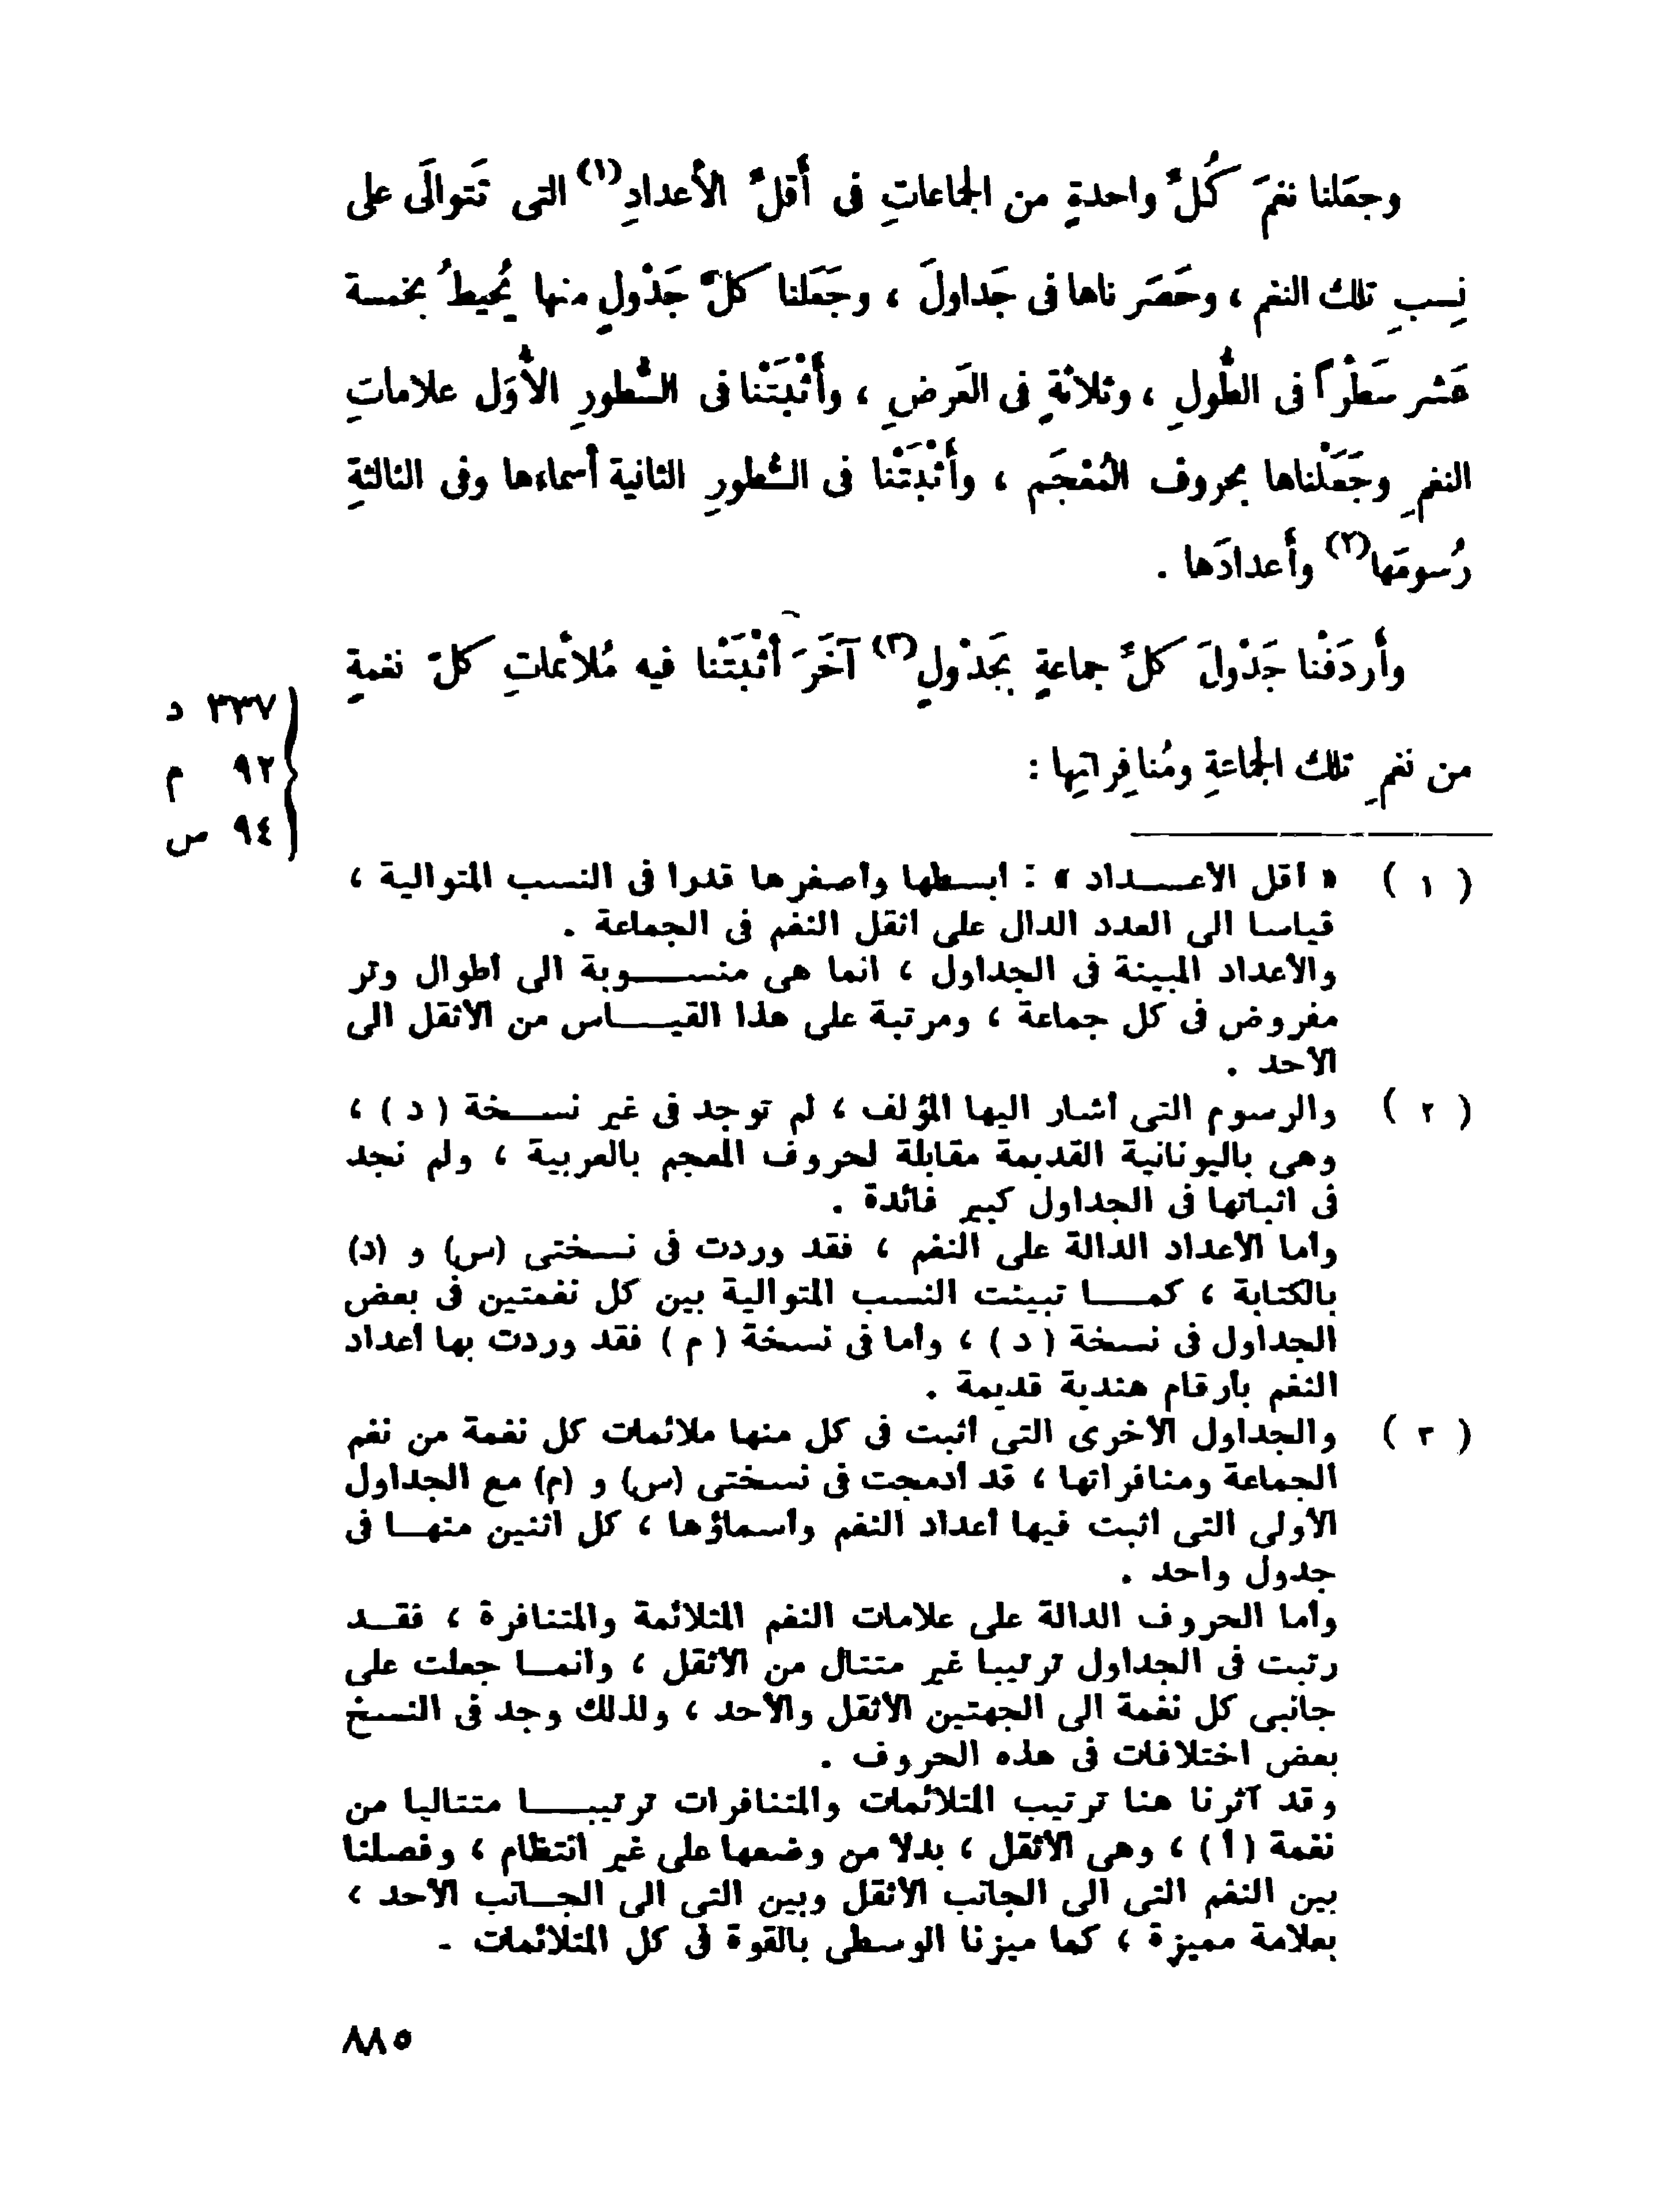 وجعَلنا نغمَ كُلِّ واحدةٍ من الجماعاتِ فى أَقلِّ الأعدادِ(١) التى تَتوالَى على
نِسبِ تلك النغمِ ، وحَصَرناها فى جَداولَ ، وجَعَلنا كلَّ جَدْولٍ منها يُحيطُ بخمسة
عَشر سَطْراً فى الطُّولِ ، وثلاثةٍ فى العَرضِ ، وأَثْبَتْنا فى السُّطورِ الأُوَل علاماتِ
النغمِ وجَعَلْناها بحروف المُعْجَم ، وأَثْبَتْنا فى السُّطورِ الثانية أسماءها وفى الثالثةِ
رُسومَها(٢) وأَعدادَها .
وأَردَفْنا جَدْولَ كلِّ جماعةٍ بجَدْولٍ(٣) آخَرَ أثْبَتْنا فيه مُلائماتِ كلّ نغمةٍ
٣٣٧ د
من نغمِ تلك الجماعةِ ومُنافِراتِها :
٩٢ م
٩٤ س
( ١ ) « أقل الأعداد » : ابسطها وأصغرها قدرا فى النسب المتوالية ،
قياسا الى العدد الدال على اثقل النغم فى الجماعة .
والأعداد المبينة فى الجداول ، انما هى منسوبة الى أطوال وتر
مفروض فى كل جماعة ، ومرتبة على هذا القياس من الأثقل الى
الأحد .
( ٢ ) والرسوم التى أشار اليها المؤلف ، لم توجد فى غير نسخة ( د ) ،
وهى باليونانية القديمة مقابلة لحروف المعجم بالعربية ، ولم نجد
فى اثباتها فى الجداول كبير فائدة .
وأما الأعداد الدالة على النغم ، فقد وردت فى نسختى (س) و (د)
بالكتابة ، كما تبينت النسب المتوالية بين كل نغمتين فى بعض
الجداول فى نسخة ( د ) ، وأما فى نسخة ( م ) فقد وردت بها أعداد
النغم بأرقام هندية قديمة .
( ٣ ) والجداول الأخرى التى أثبت فى كل منها ملائمات كل نغمة من نغم
الجماعة ومنافراتها ، قد أدمجت فى نسختى (س) و (م) مع الجداول
الأولى التى أثبت فيها أعداد النغم وأسماؤها ، كل اثنين منها فى
جدول واحد .
وأما الحروف الدالة على علامات النغم المتلائمة والمتنافرة ، فقد
رتبت فى الجداول ترتيبا غير متتال من الأثقل ، وانما جعلت على
جانبى كل نغمة الى الجهتين الأثقل والأحد ، ولذلك وجد فى النسخ
بعض اختلافات فى هذه الحروف .
وقد آثرنا هنا ترتيب المتلائمات والمتنافرات ترتيبا متتاليا من
نغمة (أ) ، وهى الأثقل ، بدلا من وضعها على غير انتظام ، وفصلنا
بين النغم التى الى الجانب الأثقل وبين التى الى الجانب الأحد ،
بعلامة مميزة ، كما ميزنا الوسطى بالقوة فى كل المتلائمات -
٨٨٥